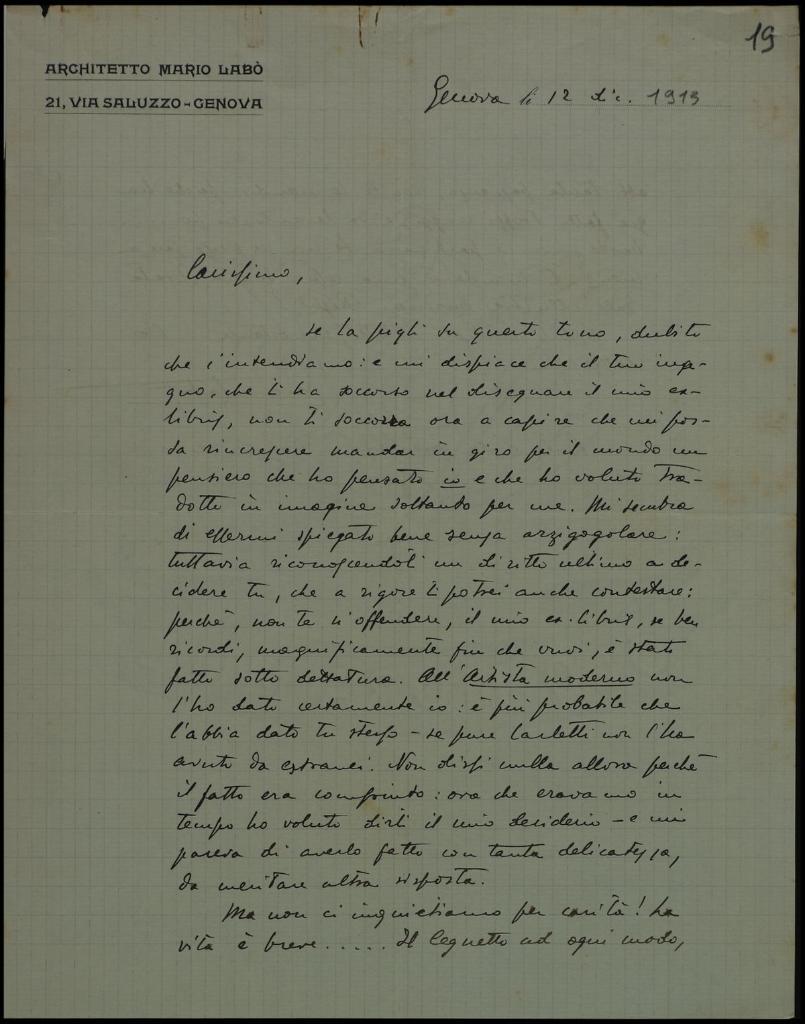 19
ARCHITETTO MARIO LABÒ
21, VIA SALUZZO - GENOVA
Genova li 12 dic. 1913
Carissimo,
se la pigli su questo tono, dubito
che c'intendiamo: e mi dispiace che il tuo inge-
gno, che ti ha soccorso nel disegnare il mio ex-
libris, non ti soccorra ora a capire che mi pos-
sa rincrescere mandar in giro per il mondo un
pensiero che ho pensato io e che ho voluto tra-
dotto in imagine soltanto per me. Mi sembra
di essermi spiegato bene senza arzigogolare:
tuttavia riconoscendoti un diritto ultimo a de-
cidere tu, che a rigore ti potrei anche contestare:
perché, non te n'offendere, il mio ex-libris, se ben
ricordi, magnificamente fin che vuoi, è stato
fatto sotto dettatura. All'Artista moderno non
l'ho dato certamente io: è più probabile che
l'abbia dato tu stesso - se pure Carletti non l'ha
avuto da estranei. Non dissi nulla allora perché
il fatto era compiuto: ora che eravamo in
tempo ho voluto dirti il mio desiderio - e mi
pareva di averlo fatto con tanta delicatezza,
da meritare altra risposta.
Ma non ci inquietiamo per carità! La
vita è breve..... Il legnetto ad ogni modo,